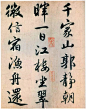 千家山郭靜朝
暉日江樓坐翠
微信宿漁舟還